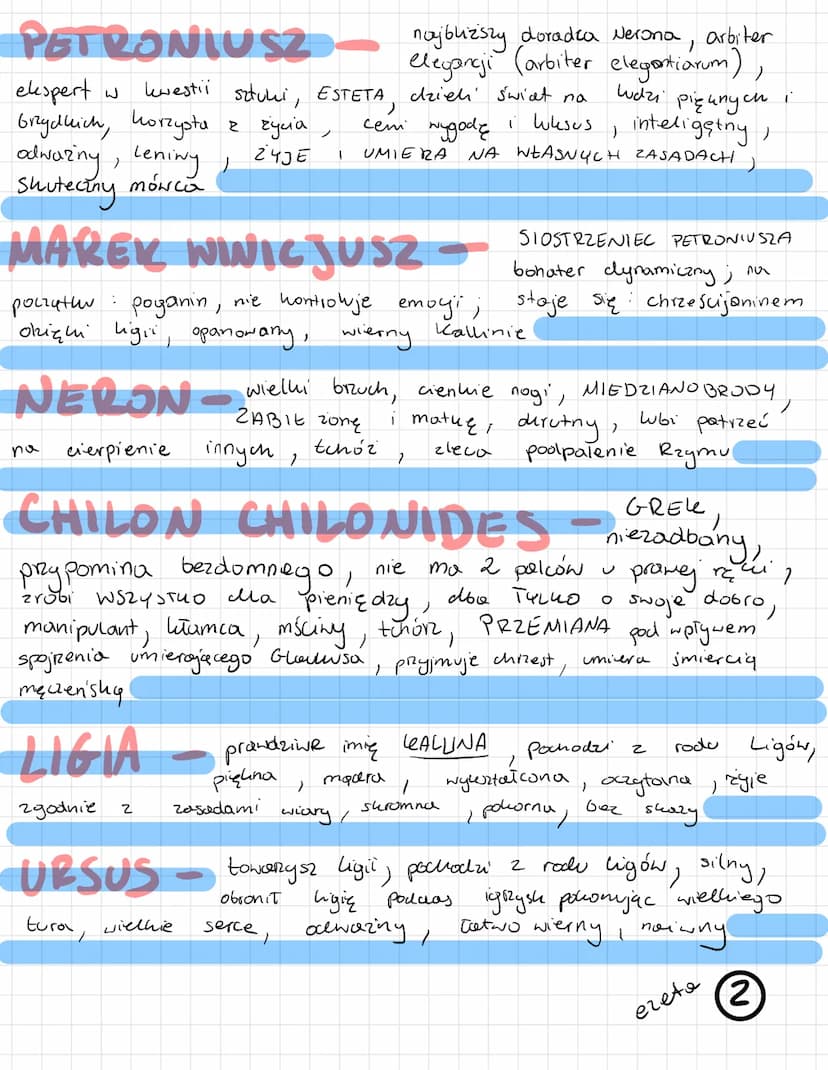 PETRONIUSZ — najbliższy doradca Nerona, arbiter
elegancji (arbiter elegantiarum),
ekspert w kwestii sztuki, ESTETA, dzieli świat na ludzi pięknych i
brzydkich, korzysta z życia, ceni wygodę i luksus, inteligętny,
odważny, leniwy, ŻYJE I UMIERA NA WŁASNYCH ZASADACH,
skuteczny mówca
MAREK WINICJUSZ — SIOSTRZENIEC PETRONIUSZA
bohater dynamiczny; na
początku: poganin, nie kontroluje emocji; staje się: chrześcijaninem
dzięki Ligii, opanowany, wierny Kallinie
NERON — wielki brzuch, cienkie nogi, MIEDZIANOBRODY,
ZABIŁ żonę i matkę, okrutny, lubi patrzeć
na cierpienie innych, tchórz, zleca podpalenie Rzymu
CHILON CHILONIDES — GREK,
niezadbany,
przypomina bezdomnego, nie ma 2 palców u prawej ręki,
zrobi WSZYSTKO dla pieniędzy, dba TYLKO o swoje dobro,
manipulant, kłamca, mściwy, tchórz, PRZEMIANA pod wpływem
spojrzenia umierającego Glaukusa, przyjmuje chrzest, umiera śmiercią
męczeńską
LIGIA — prawdziwe imię KALLINA, pochodzi z rodu Ligów,
piękna, mądra, wykształcona, oczytana, żyje
zgodnie z zasadami wiary, skromna, pokorna, bez skazy
URSUS — towarzysz Ligii, pochodzi z rodu Ligów, silny,
obronił Ligię podczas igrzysk pokonując wielkiego
tura, wielkie serce, odważny, łatwo wierny, naiwny
2